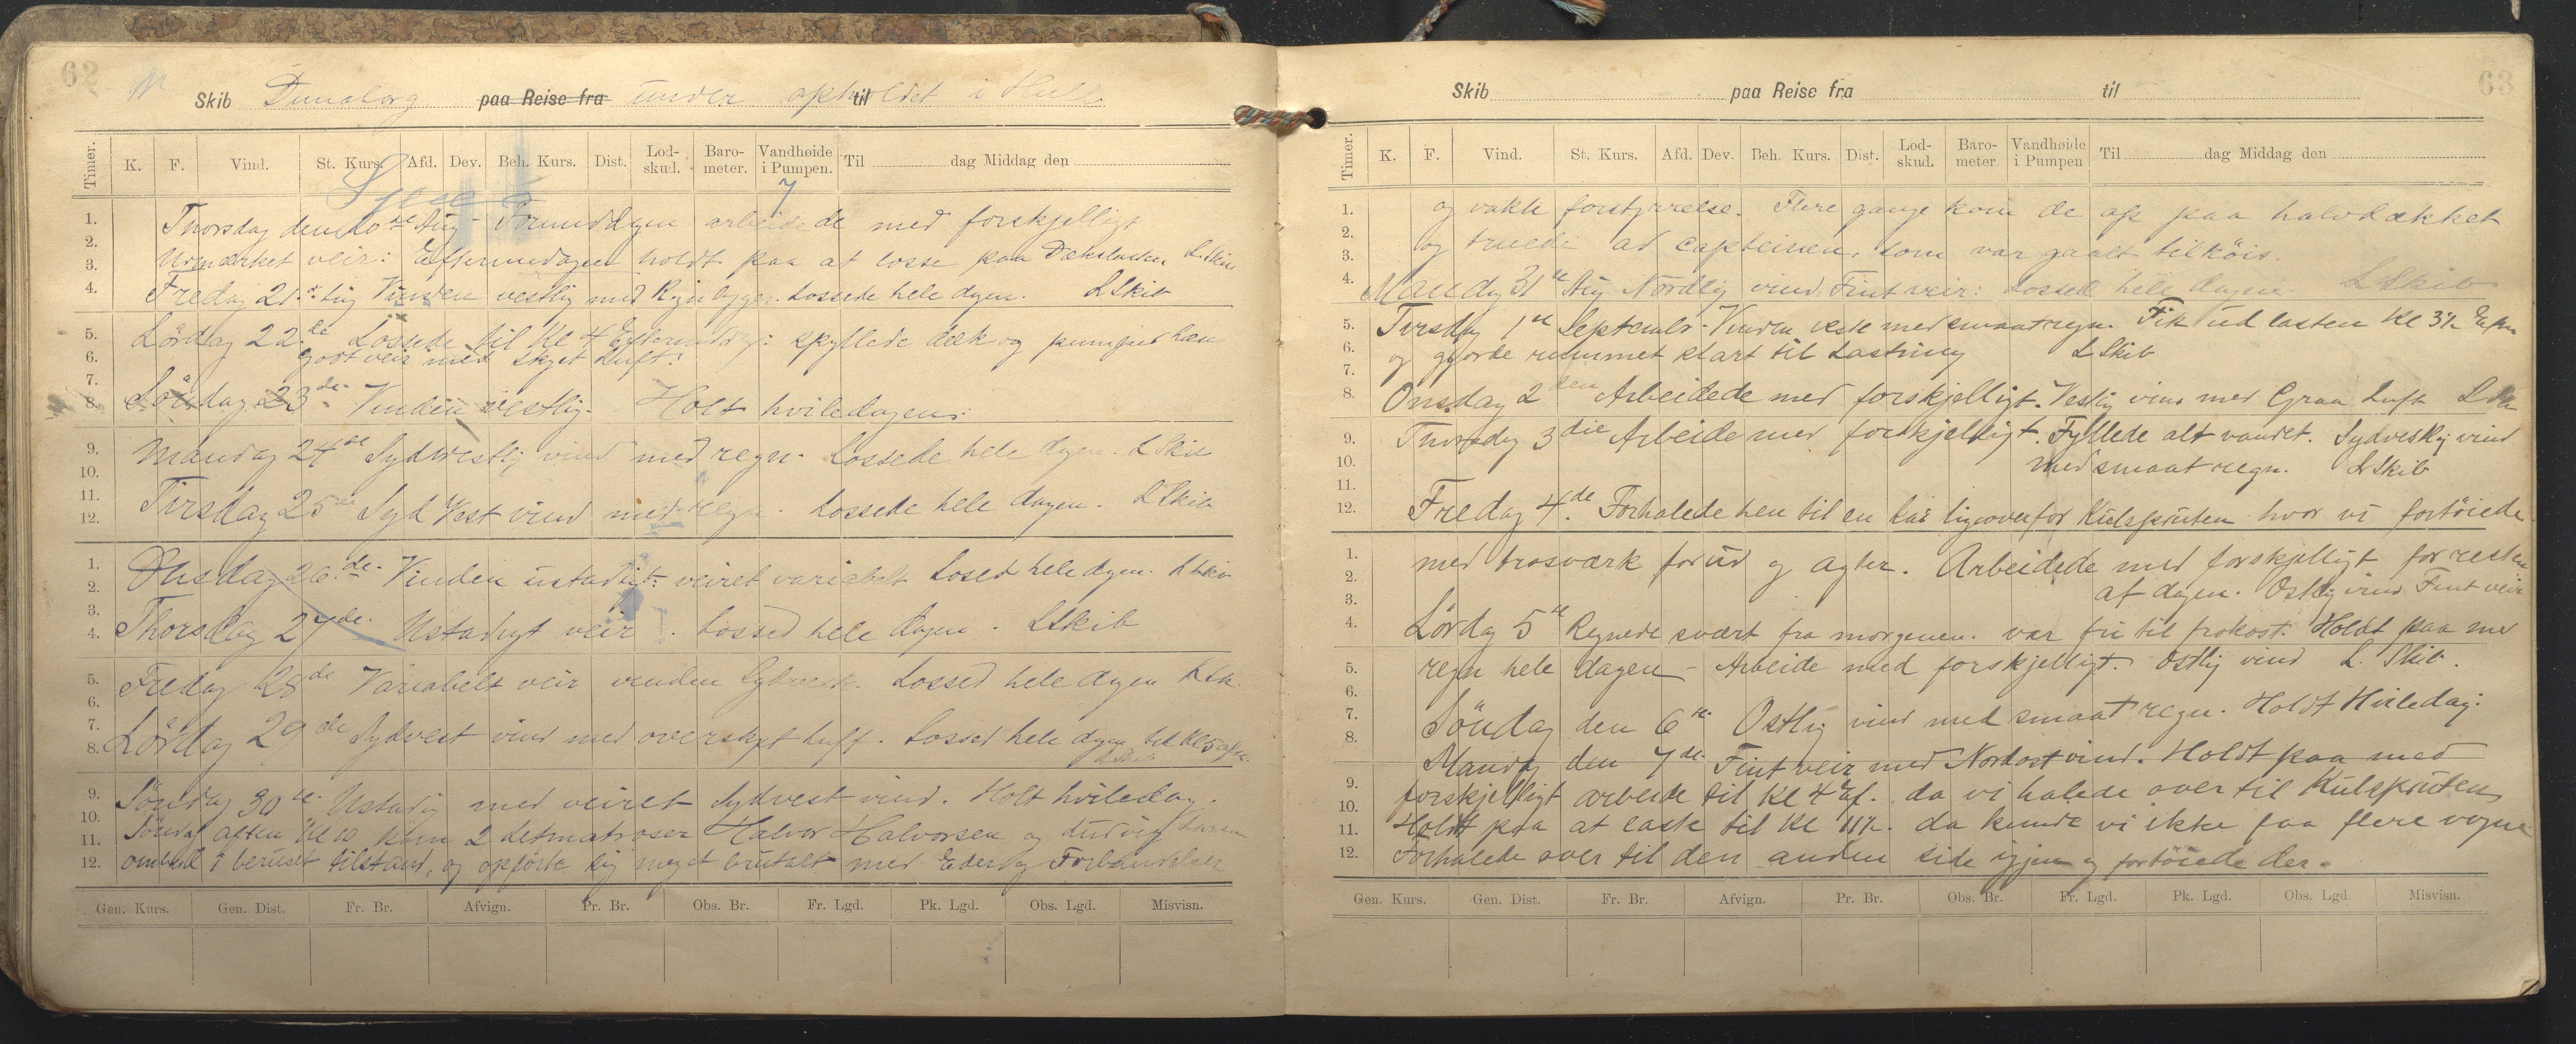 62
Skib Dunaborg paa Reise fra under opholdet til i Hull
Timer. K. F. Vind. St. Kurs. Afd. Dev. Beh. Kurs. Dist. Lod-skud. Baro-meter. Vandhøide i Pumpen. Til dag Middag den
7
1.
2.
3.
4.
5.
6.
7.
8.
9.
10.
11.
12.
1.
2.
3.
4.
5.
6.
7.
8.
9.
10.
11.
12.
Thorsdag den 20de Aug - Formiddagen arbeidede med forskjelligt
Udmærket veir: Eftermidagen holdt paa at losse paa Dækslasten L. Skib
Fredag 21de Aug Vinden vestlig med Regnbyger. Lossede hele dagen. L Skib
Lördag 22de Lossede til Kl 4 Eftermidag: spyllede dæk og pumpet læns
godt veir med skyet Luft:
Söndag 23de Vinden vestlig. Holt hviledagen:
Mandag 24de Sydvestlig vind med regn. Lossede hele dagen. L Skib
Tirsdag 25de Syd Vest vind med regn. Lossede hele dagen. L Skib
Onsdag 26de Vinden ustadigt: veiret variabelt Losed hele dagen. L Skib
Thorsdag 27de Ustadigt veir. Lossed hele dagen. L Skib
Fredag 28de Variabelt veir vinden Sydvest. Lossed hele dagen L Sk.
Lördag 29de Sydvest vind med overskyet luft. Lossed hele dagen til Kl 5 aften
L Skib
Söndag 30te Ustadig med veiret Sydvest vind. Holt hviledag.
Söndag aften Kl 10 kom 2 letmatroser Halvor Halvorsen og Ludvig Larsen
ombord i beruset tilstand, og opförte sig meget brutalt med Eder og Forbandelser
Gen. Kurs. Gen. Dist. Fr. Br. Afvign. Pr. Br. Obs. Br. Fr. Lgd. Pk. Lgd. Obs. Lgd. Misvisn.
63
Skib paa Reise fra til
Timer. K. F. Vind. St. Kurs. Afd. Dev. Beh. Kurs. Dist. Lod-skud. Baro-meter. Vandhøide i Pumpen Til dag Middag den
1.
2.
3.
4.
5.
6.
7.
8.
9.
10.
11.
12.
1.
2.
3.
4.
5.
6.
7.
8.
9.
10.
11.
12.
og vakte forstyrrelse. Flere gange kom de op paa halvdækket
og truede ad capteinen, som var gaalt tilköis.
Mandag 31te Aug Nordlig vind: Fint veir: Lossed hele dagen L Skib
Tirsdag 1te Septembr. Vinden vest med smaat regn. Fik ud lasten Kl 3½ Eften
og gjorde rummet klart til Lastning L Skib
Onsdag 2den Arbeidede med forskjelligt. Vestlig vind med Graa Luft L Sk
Thorsdag 3die Arbeide med forskjelligt. Fyllede alt vandet. Sydvestlig vind
med smaat regn. L Skib
Fredag 4de Forhalede hen til en kai ligeoverfor Kulspruten hvor vi fortöiede
med trosværk forud og agter. Arbeidede med forskjelligt for resten
af dagen. Ostlig vind Fint veir
Lördag 5te Regnede svært fra morgenen. var fri til frokost. Holdt paa med
regn hele dagen - Arbeide med forskjelligt. Ostlig vind L. Skib.
Söndag den 6te Ostlig vind med smaat regn. Holdt Hviledag:
Mandag den 7de Fint veir med Nordost vind. Holdt paa med
forskjelligt arbeide til Kl 4 Ef. da vi halede over til Kulspruten
Holdt paa at laste til Kl 11½. da kunde vi ikke faa flere vogne
Forhalede over til den anden side igjen og fortöiede der.
Gen. Kurs. Gen. Dist. Fr. Br. Afvign. Pr. Br. Obs. Br. Fr. Lgd. Pk. Lgd. Obs. Lgd. Misvisn.